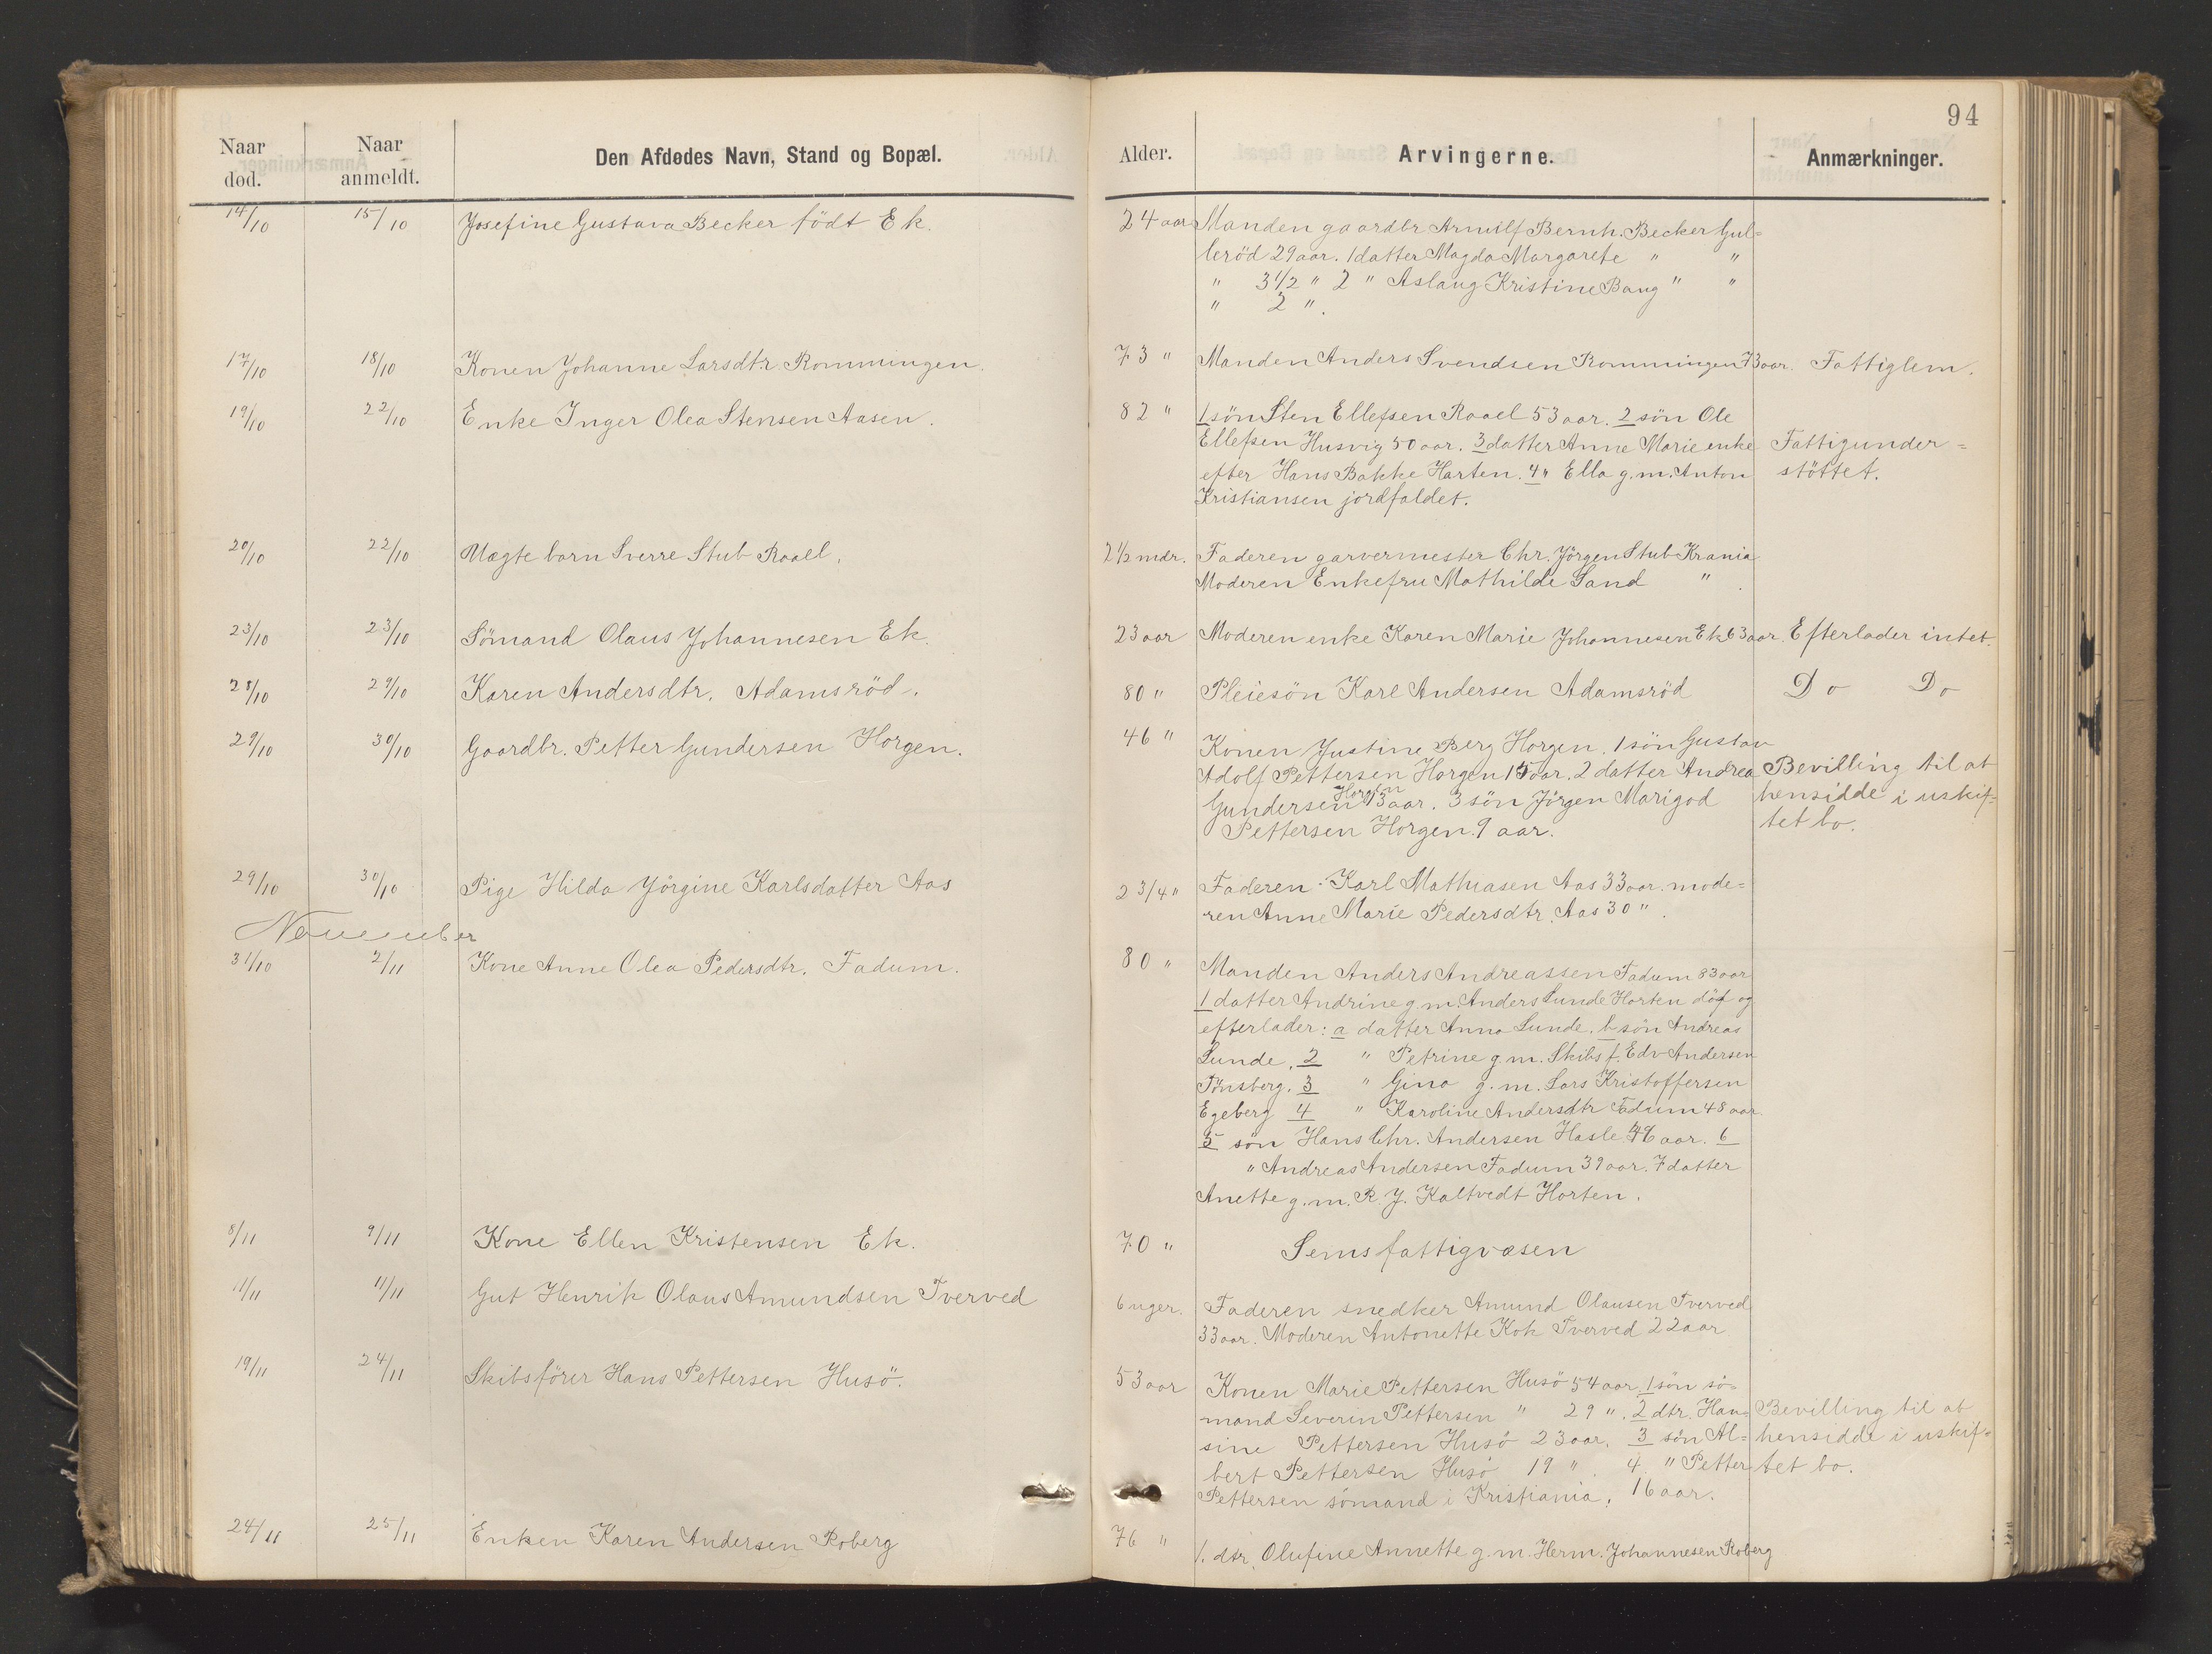 94
Naar død. Naar anmeldt. Den Afdødes Navn, Stand og Bopæl. Alder. Arvingerne. Anmærkninger.
14/10 15/10 Josefine Gustava Becker födt Ek. 24 aar Manden gaardbr Arnulf Bernh. Becker Gul=
leröd 29 aar. 1 datter Magda Margarete " "
" 3 1/2 " 2 " Aslaug Kristine Bang " "
" 2 ".
17/10 18/10 Konen Johanne Larsdtr. Rommingen. 73 " Manden Anders Svendsen Rommingen 73 aar. Fattiglem.
19/10 22/10 Enke Inger Olea Stensen Aasen. 82 " 1 sön Sten Ellefsen Raael 53 aar. 2 sön Ole
Ellefsen Husvig 50 aar. 3 datter Anne Marie enke Fattigunder=
efter Hans Bakke Horten. 4 " Ella g.m. Anton stöttet.
Kristiansen jordfaldet.
20/10 22/10 Uægte barn Sverre Stub Raael. 2 1/2 mdr. Faderen garvermester Chr. Jörgen Stub Krania
Moderen Enkefru Mathilde Sand ".
23/10 23/10 Sömand Olaus Johannesen Ek. 23 aar Moderen enke Karen Marie Johannesen Ek 63 aar. Efterlader intet.
28/10 29/10 Karen Andersdtr. Adamsröd. 80 " Pleiesön Karl Andersen Adamsröd Do Do
29/10 30/10 Gaardbr. Petter Gundersen Horgen. 46 " Konen Justine Berg Horgen. 1 sön Gustav
Adolf Pettersen Horgen 15 aar. 2 datter Andrea Bevilling til at
Gundersen Horgen 13 aar. 3 sön Jörgen Marigod hensidde i uskif=
Pettersen Horgen. 9 aar. tet bo.
29/10 30/10 Pige Hilda Jörgine Karlsdatter Aas 2 3/4 " Faderen Karl Mathiasen Aas 33 aar. mode=
ren Anne Marie Pedersdtr. Aas 30 ".
November
31/10 2/11 Kone Anne Olea Pedersdtr. Fadum. 80 " Manden Anders Andreassen Fadum 83 aar
1 datter Andrine g.m. Anders Lunde Horten död og
efterlader: a datter Anna Lunde. b sön Andreas
Lunde. 2 " Petrine g.m. Skibsf. Edv Andersen
Tönsberg. 3 " Gina g.m. Lars Kristoffersen
Egeberg 4 " Karoline Andersdtr Fadum 48 aar.
5 sön Hans Chr. Andersen Hasle 46 aar. 6
" Andreas Andersen Fadum 39 aar. 7 datter
Anette g.m. R. J. Kaltvedt Horten.
8/11 9/11 Kone Ellen Kristensen Ek. 70 " Sems fattigvæsen
11/11 11/11 Gut Henrik Olaus Amundsen Tverved 6 uger. Faderen snedker Amund Olausen Tverved
33 aar. Moderen Antonette Kok Tverved 22 aar
19/11 24/11 Skibsförer Hans Pettersen Husö. 53 aar Konen Marie Pettersen Husö 54 aar. 1 sön sö=
mand Severin Pettersen " 29 ". 2 dtr. Han= Bevilling til at
sine Pettersen Husö 23 aar. 3 sön Al= hensidde i uskif=
bert Pettersen Husö 19 ". 4. " Petter tet bo.
Pettersen sömand i Kristiania. 16 aar.
24/11 25/11 Enken Karen Andersen Roberg 76 " 1. dtr. Olufine Annette g.m. Herm. Johannesen Roberg